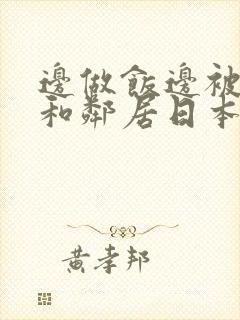 邊做飯邊被
和鄰居日本
黃孝邦